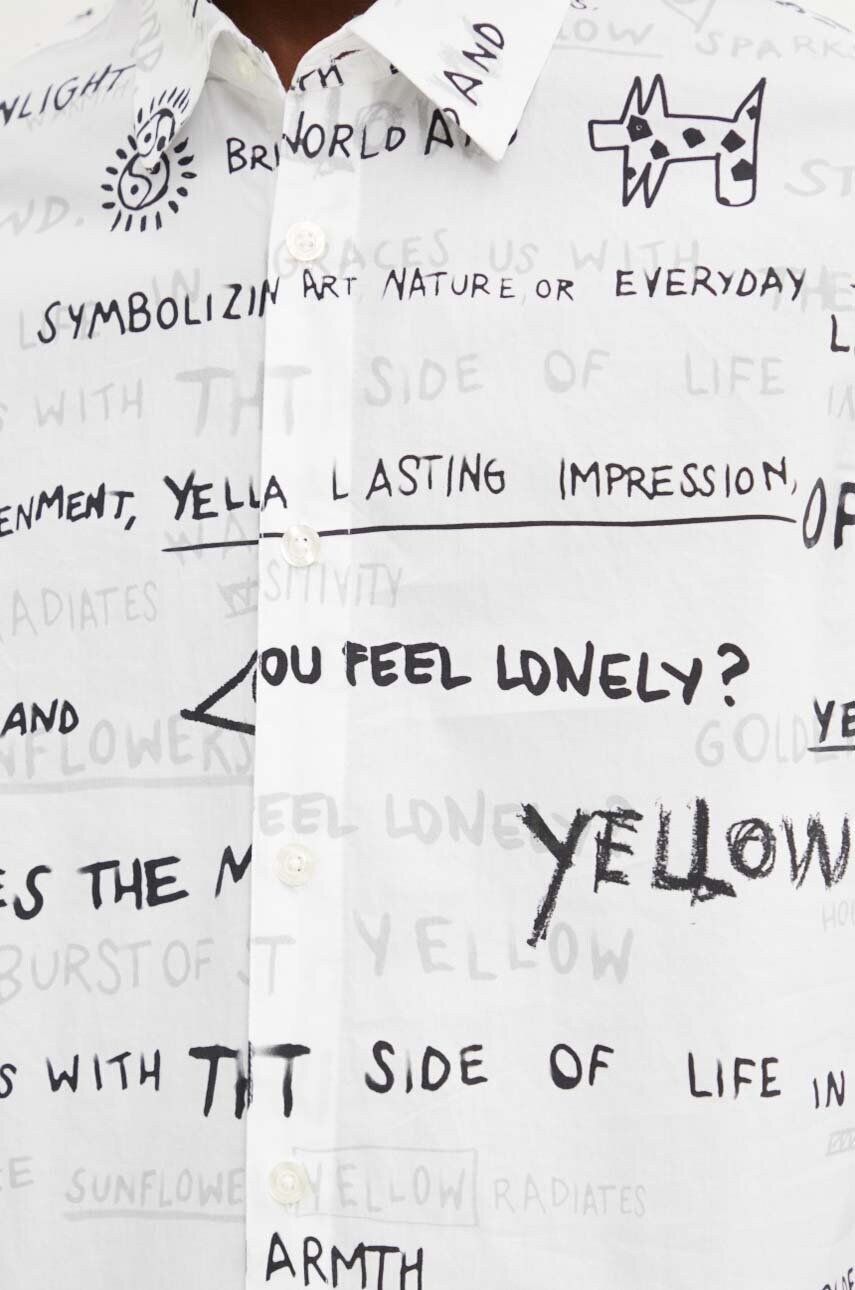 OW SPARKS
NLIGHT
AND
BRI WORLD A
ND.
GRACES US WITH
IN
SYMBOLIZIN ART NATURE, OR EVERYDAY
THE
S WITH THT SIDE OF LIFE
IN
ENMENT, YELLA LASTING IMPRESSION,
OF
WA
RADIATES SITIVITY
OU FEEL LONELY?
AND
YE
NFLOWERS
GOLDE
EEL LONELY?
YELLOW
ES THE M
HO
BURST OF ST YELLOW
S WITH THT SIDE OF LIFE IN
E SUNFLOWE YELLOW RADIATES
ARMTH